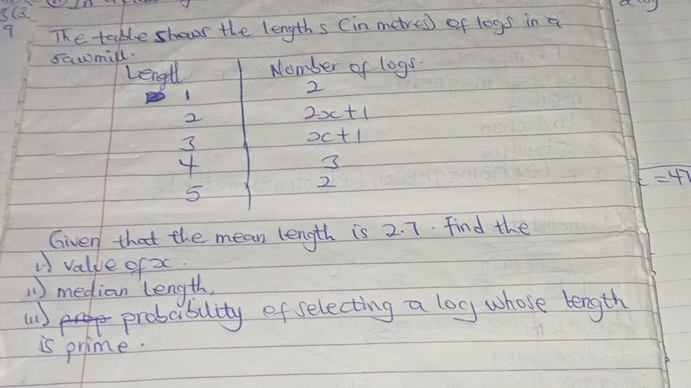 The table shows the lengths (in metres) of logs in a
sawmill.
Length Number of logs.
1 2
2 2x+1
3 x+1
4 3
5 2
= 47
Given that the mean length is 2.7. Find the
i) value of x.
ii) median length,
iii) probability of selecting a log whose length
is prime.